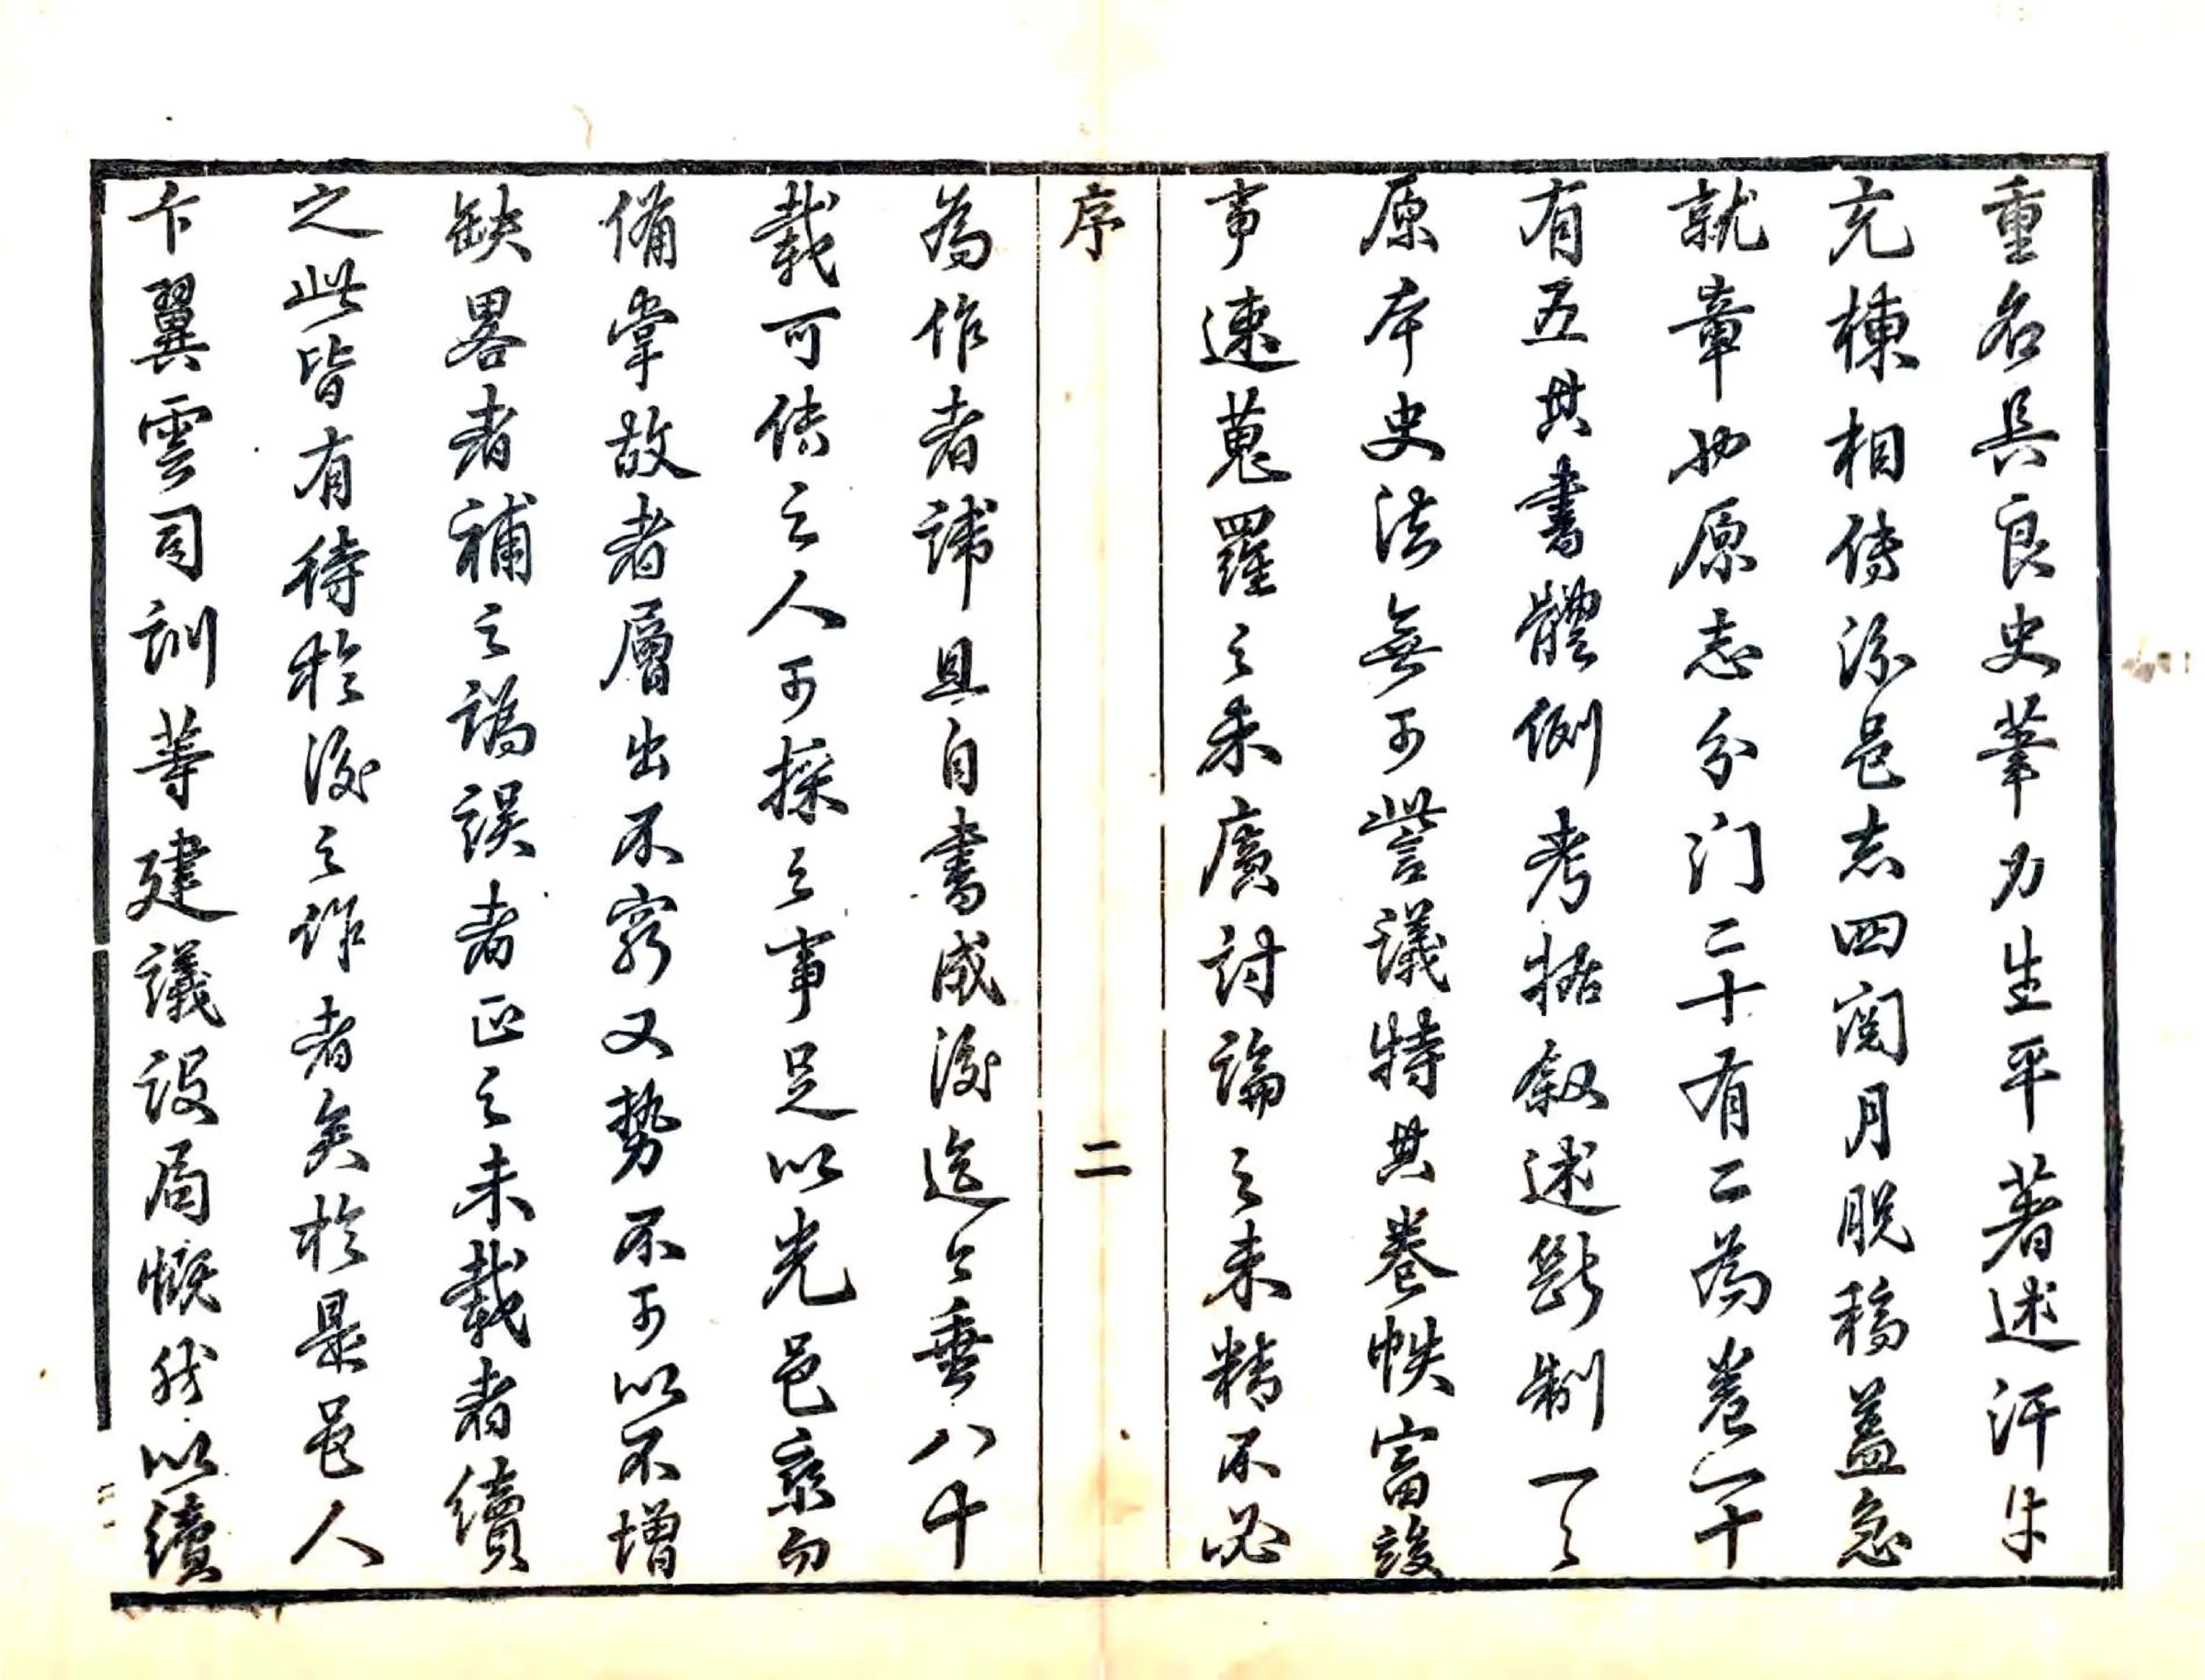 重名具良史筆力生平著述汗牛
充棟相傳於邑志四閱月脫稿蓋急
就章也原志分门二十有二為卷一十
有五其書體例考據叙述斷制一〻
原本史法無可訾議特其卷帙富竣
事速蒐羅之未廣討論之未精不必
序
二
為作者諱且自書成後迄今垂八十
載可傳之人可採之事足以光邑乘而
備掌故者層出不窮又勢不可以不增
缺畧者補之譌誤者正之未載者續
之此皆有待於後之作者矣於是邑人
卞翼雲司訓等建議設局慨然以續